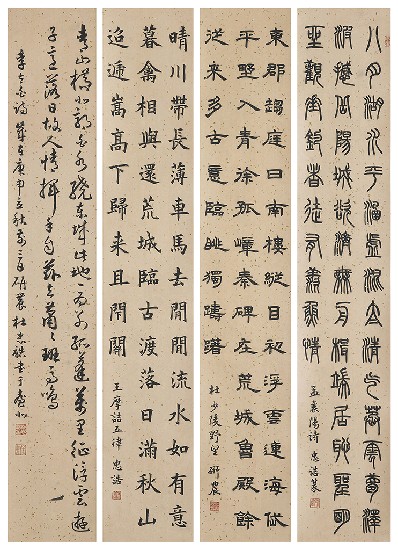 八月湖水平涵虛混太清气蒸雲夢澤
波撼岳陽城欲濟無舟楫端居恥聖明
坐觀垂釣者徒有羨魚情
孟襄陽詩 忠誥篆
東郡趨庭日南樓縱目初浮雲連海岱
平野入青徐孤嶂秦碑在荒城魯殿餘
從來多古意臨眺獨躊躇
杜少陵野望 研農
晴川帶長薄車馬去閒閒流水如有意
暮禽相與還荒城臨古渡落日滿秋山
迢遞嵩高下歸來且閉關
王摩詰五律 忠誥
青山橫北郭白水繞東城此地一為別孤蓬萬里征浮雲遊
子意落日故人情揮手自茲去蕭蕭班馬鳴
李太白詩 歲在庚申立秋前三日研農杜忠誥書于臺北